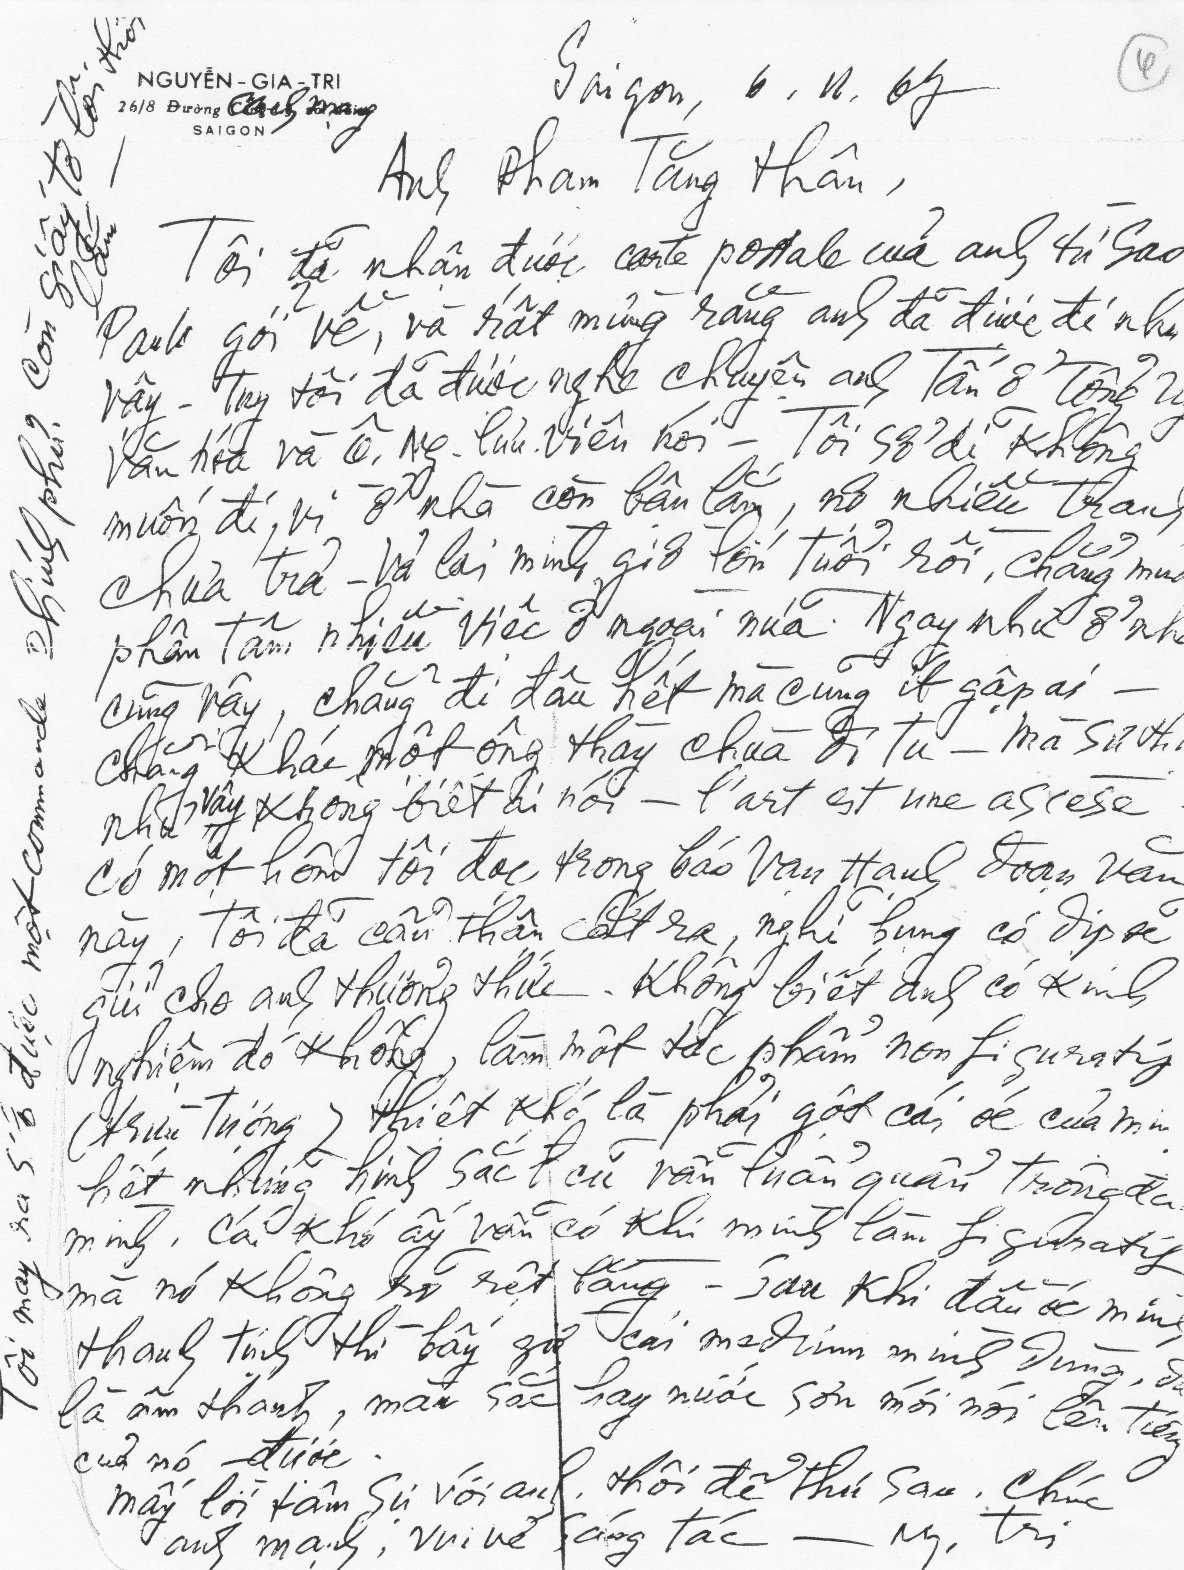 NGUYỄN-GIA-TRI
26/8 Đường Cách mạng
SAIGON
Saigon, 6.11.67
Anh Phạm Tăng thân,
Tôi đã nhận được carte postale của anh từ Sao
Paulo gởi về, và rất mừng rằng anh đã được đi như
vậy - Tuy tôi đã được nghe chuyện anh Tấn ở Tổng
Văn hóa và ô. Ng. lưu. Viên nói - Tôi sở dĩ không
muốn đi, vì ở nhà còn bận lắm, nợ nhiều tranh
chưa trả - Vả lại mình giờ lớn tuổi rồi, chẳng muốn
phân tâm nhiều việc ở ngoài nữa. Ngay như ở nhà
cũng vậy, chẳng đi đâu hết mà cũng ít gặp ai -
chẳng khác một ông thầy chùa đi tu - Mà sự thi
như vậy không biết ai nói - l'art est une ascèse -
có một hôm tôi đọc trong báo Vạn Hạnh đoạn văn
này, tôi đã cẩn thận cắt ra, nghĩ bụng có dịp sẽ
gửi cho anh thưởng thức. Không biết anh có kinh
nghiệm đó không, làm một tác phẩm non figuratif
(trừu tượng) thiệt khó là phải gột cái óc của mình
hết những hình sắc cũ vẫn luẩn quẩn trong đầu
mình. Cái khó ấy vẫn có khi mình làm figuratif
mà nó không rõ rệt bằng - Sau khi đầu óc mình
thanh tịnh thì bấy giờ cái medium mình dùng, dù
là âm thanh, màu sắc hay nước sơn mới nói lên tiếng
của nó được.
Mấy lời tâm sự với anh, thôi để thư sau. Chúc
anh mạnh, vui vẻ sáng tác — Ng. Tri
Tôi may ra sẽ được một commande chính phủ. Còn giấy tờ lôi thôi
lắm -